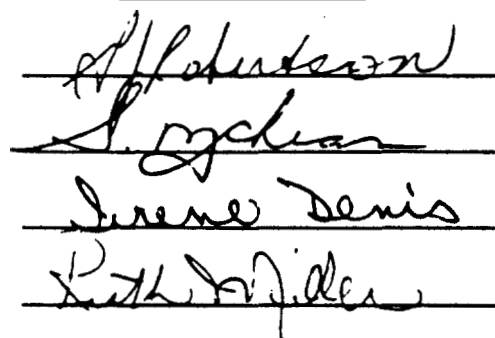 Robertson
S.
Irene Denis
Ruth Miller